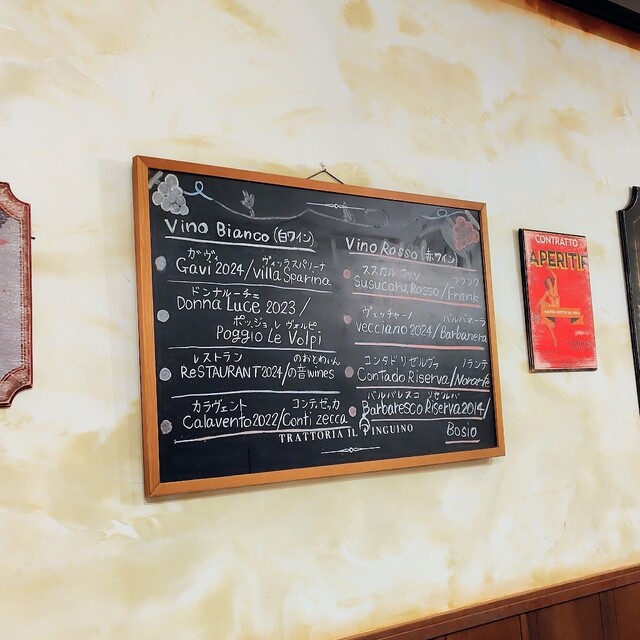 Vino Bianco (白ワイン)
ガヴィ ヴィッラスパリーナ
Gavi 2024/Villa Sparina
ドンナルーチェ
Donna Luce 2023/
ポッジョ レ ヴォルピ
Poggio Le Volpi
レストラン のおとわいん
ReSTAURANT 2024/の音wines
カラヴェント コンティゼッカ
Calavento2022/Conti zecca
Vino Rosso (赤ワイン)
ススカル ロッソ フランク
Susucaru Rosso/Frank
ヴェッチャーノ バルバネーラ
Vecciano 2024/Barbanera
コンタド リゼルヴァ ノランテ
Contado Riserva/Norante
バルバレスコ リゼルバ
Barbaresco Riserva 2014/
Bosio
TRATTORIA IL PINGUINO
CONTRATTO
APERITIF